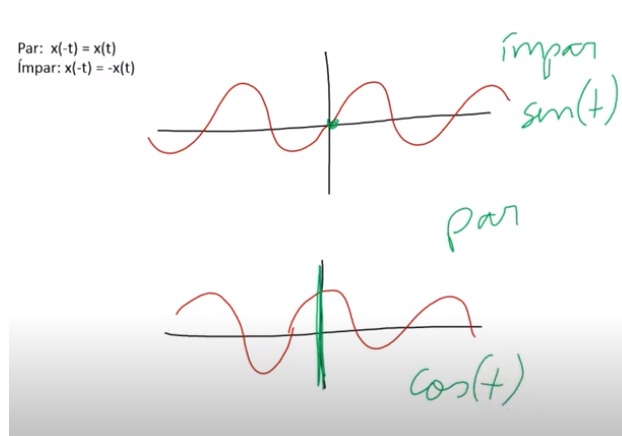 Par: x(-t) = x(t)
Ímpar: x(-t) = -x(t)
ímpar
sen(t)
par
cos(t)